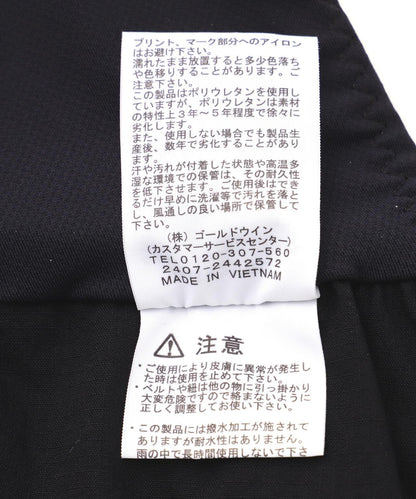 プリント、マーク部分へのアイロン
はお避け下さい。
濡れたまま放置すると多少色落ち
や色移りすることがあります。ご
注意下さい。
この製品はポリウレタンを使用し
ていますが、ポリウレタンは素材
の特性上3年〜5年程度で徐々に
劣化します。
また、使用しない場合でも製品生
産後、数年で劣化することがあり
ます。
汗や汚れが付着した状態や高温多
湿な環境での保管は、その耐久性
を低下させます。ご使用後はでき
るだけ早めに洗濯等で汚れを落と
し、風通しの良い場所で保管して
下さい。
(株) ゴールドウイン
(カスタマーサービスセンター)
TEL0120-307-560
2407-2442572
MADE IN VIETNAM
注意
・ご使用により皮膚に異常が発生し
た時は使用を止めて下さい。
・ベルトや紐は他の物に引っ掛かり
大変危険ですので絡まないように
正しく調整してお使い下さい。
・この製品には撥水加工が施されて
ありますが耐水性はありません。
雨の中で長時間使用しないで下さ